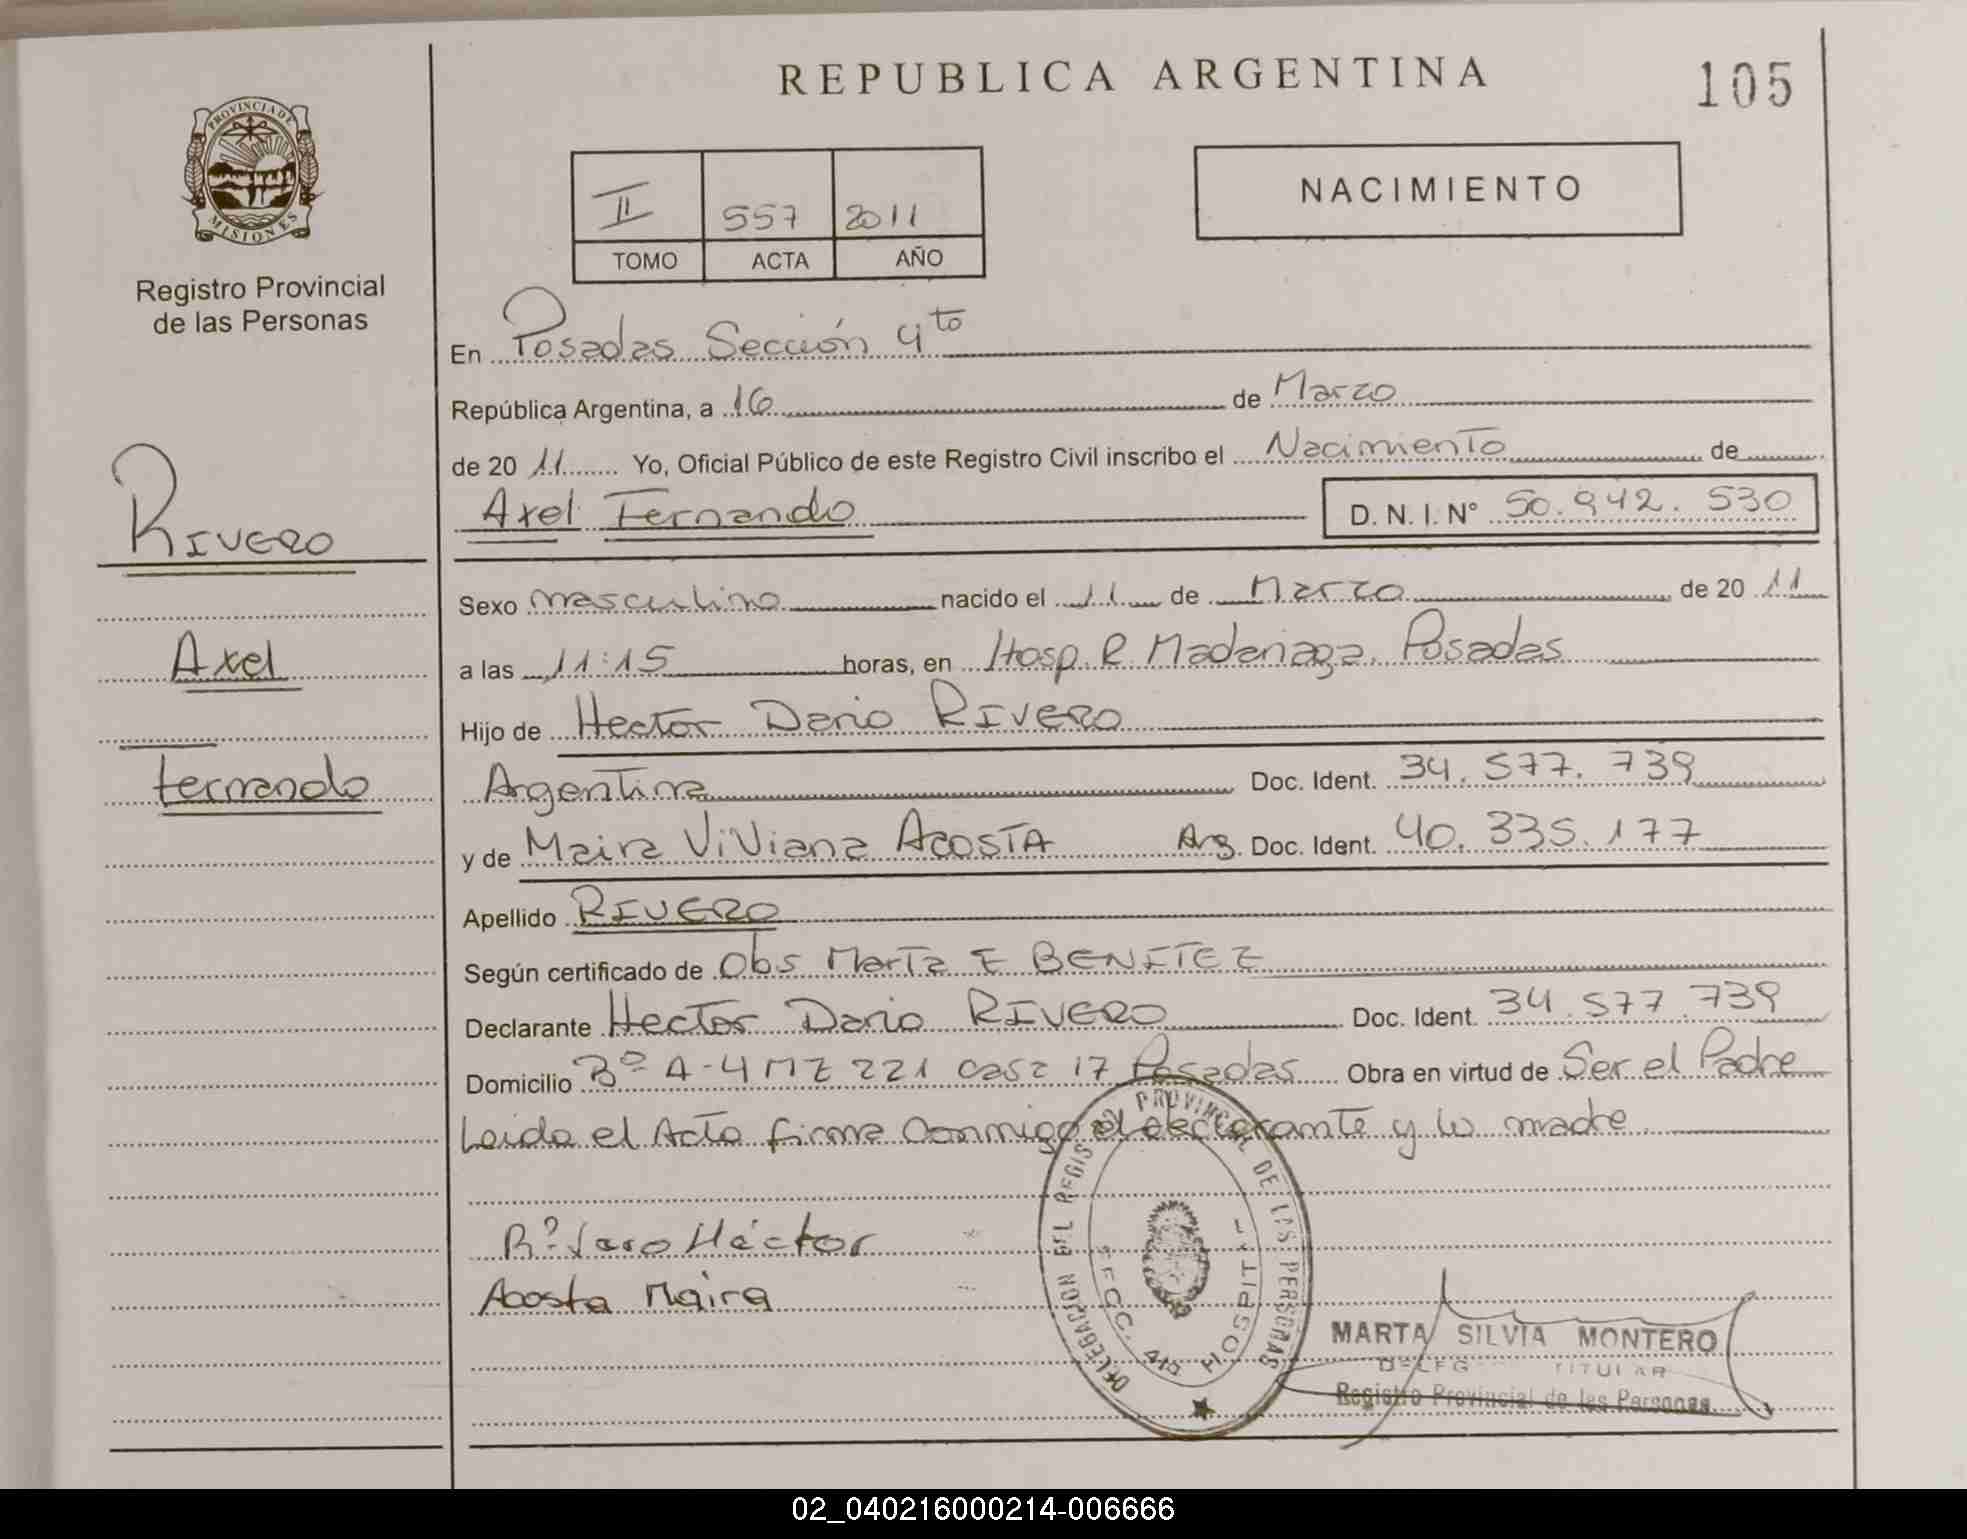 REPUBLICA ARGENTINA
105
PROVINCIA DE
MISIONES
Registro Provincial
de las Personas
II 557 2011
TOMO ACTA AÑO
NACIMIENTO
En Posadas Sección 4to
República Argentina, a 16 de Marzo
de 2011 Yo, Oficial Público de este Registro Civil inscribo el Nacimiento de
Axel Fernando D. N. I. N° 50.942.530
RIVERO
Axel
Fernando
Sexo masculino nacido el 11 de Marzo de 2011
a las 11:15 horas, en Hosp. R Madariaga. Posadas
Hijo de Hector Dario RIVERO
Argentina Doc. Ident. 34.577.739
y de Maira Viviana ACOSTA Arg. Doc. Ident. 40.335.177
Apellido RIVERO
Según certificado de Obs Marta E BENITEZ
Declarante Hector Dario RIVERO Doc. Ident. 34.577.739
Domicilio Bº A-4 MZ 221 casa 17 Posadas Obra en virtud de Ser el Padre
Leida el Acta firma conmigo el declarante y la madre
Héctor
Acosta Maira
DELEGACION DEL REGISTRO PROVINCIAL DE LAS PERSONAS
SECC. 4ta HOSPITAL
MARTA SILVIA MONTERO
TITULAR
Registro Provincial de las Personas
02_040216000214-006666